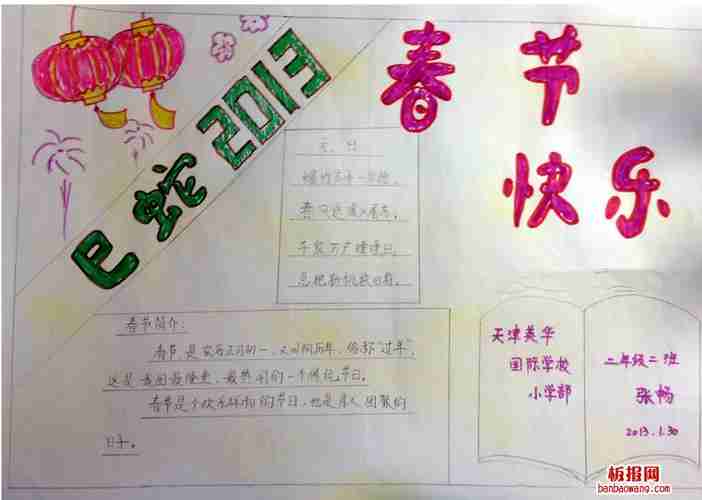 春节
快乐
巳蛇2013
元 日
爆竹声中一岁除,
春风送暖入屠苏。
千家万户曈曈日,
总把新桃换旧符。
春节简介:
春节是农历正月初一,又叫阴历年,俗称“过年”,
这是我国最隆重、最热闹的一个传统节日。
春节是个欢乐祥和的节日,也是亲人团聚的
日子。
天津美华
国际学校
小学部
二年级二班
张畅
2013.1.30
板报网
banbaowang.com